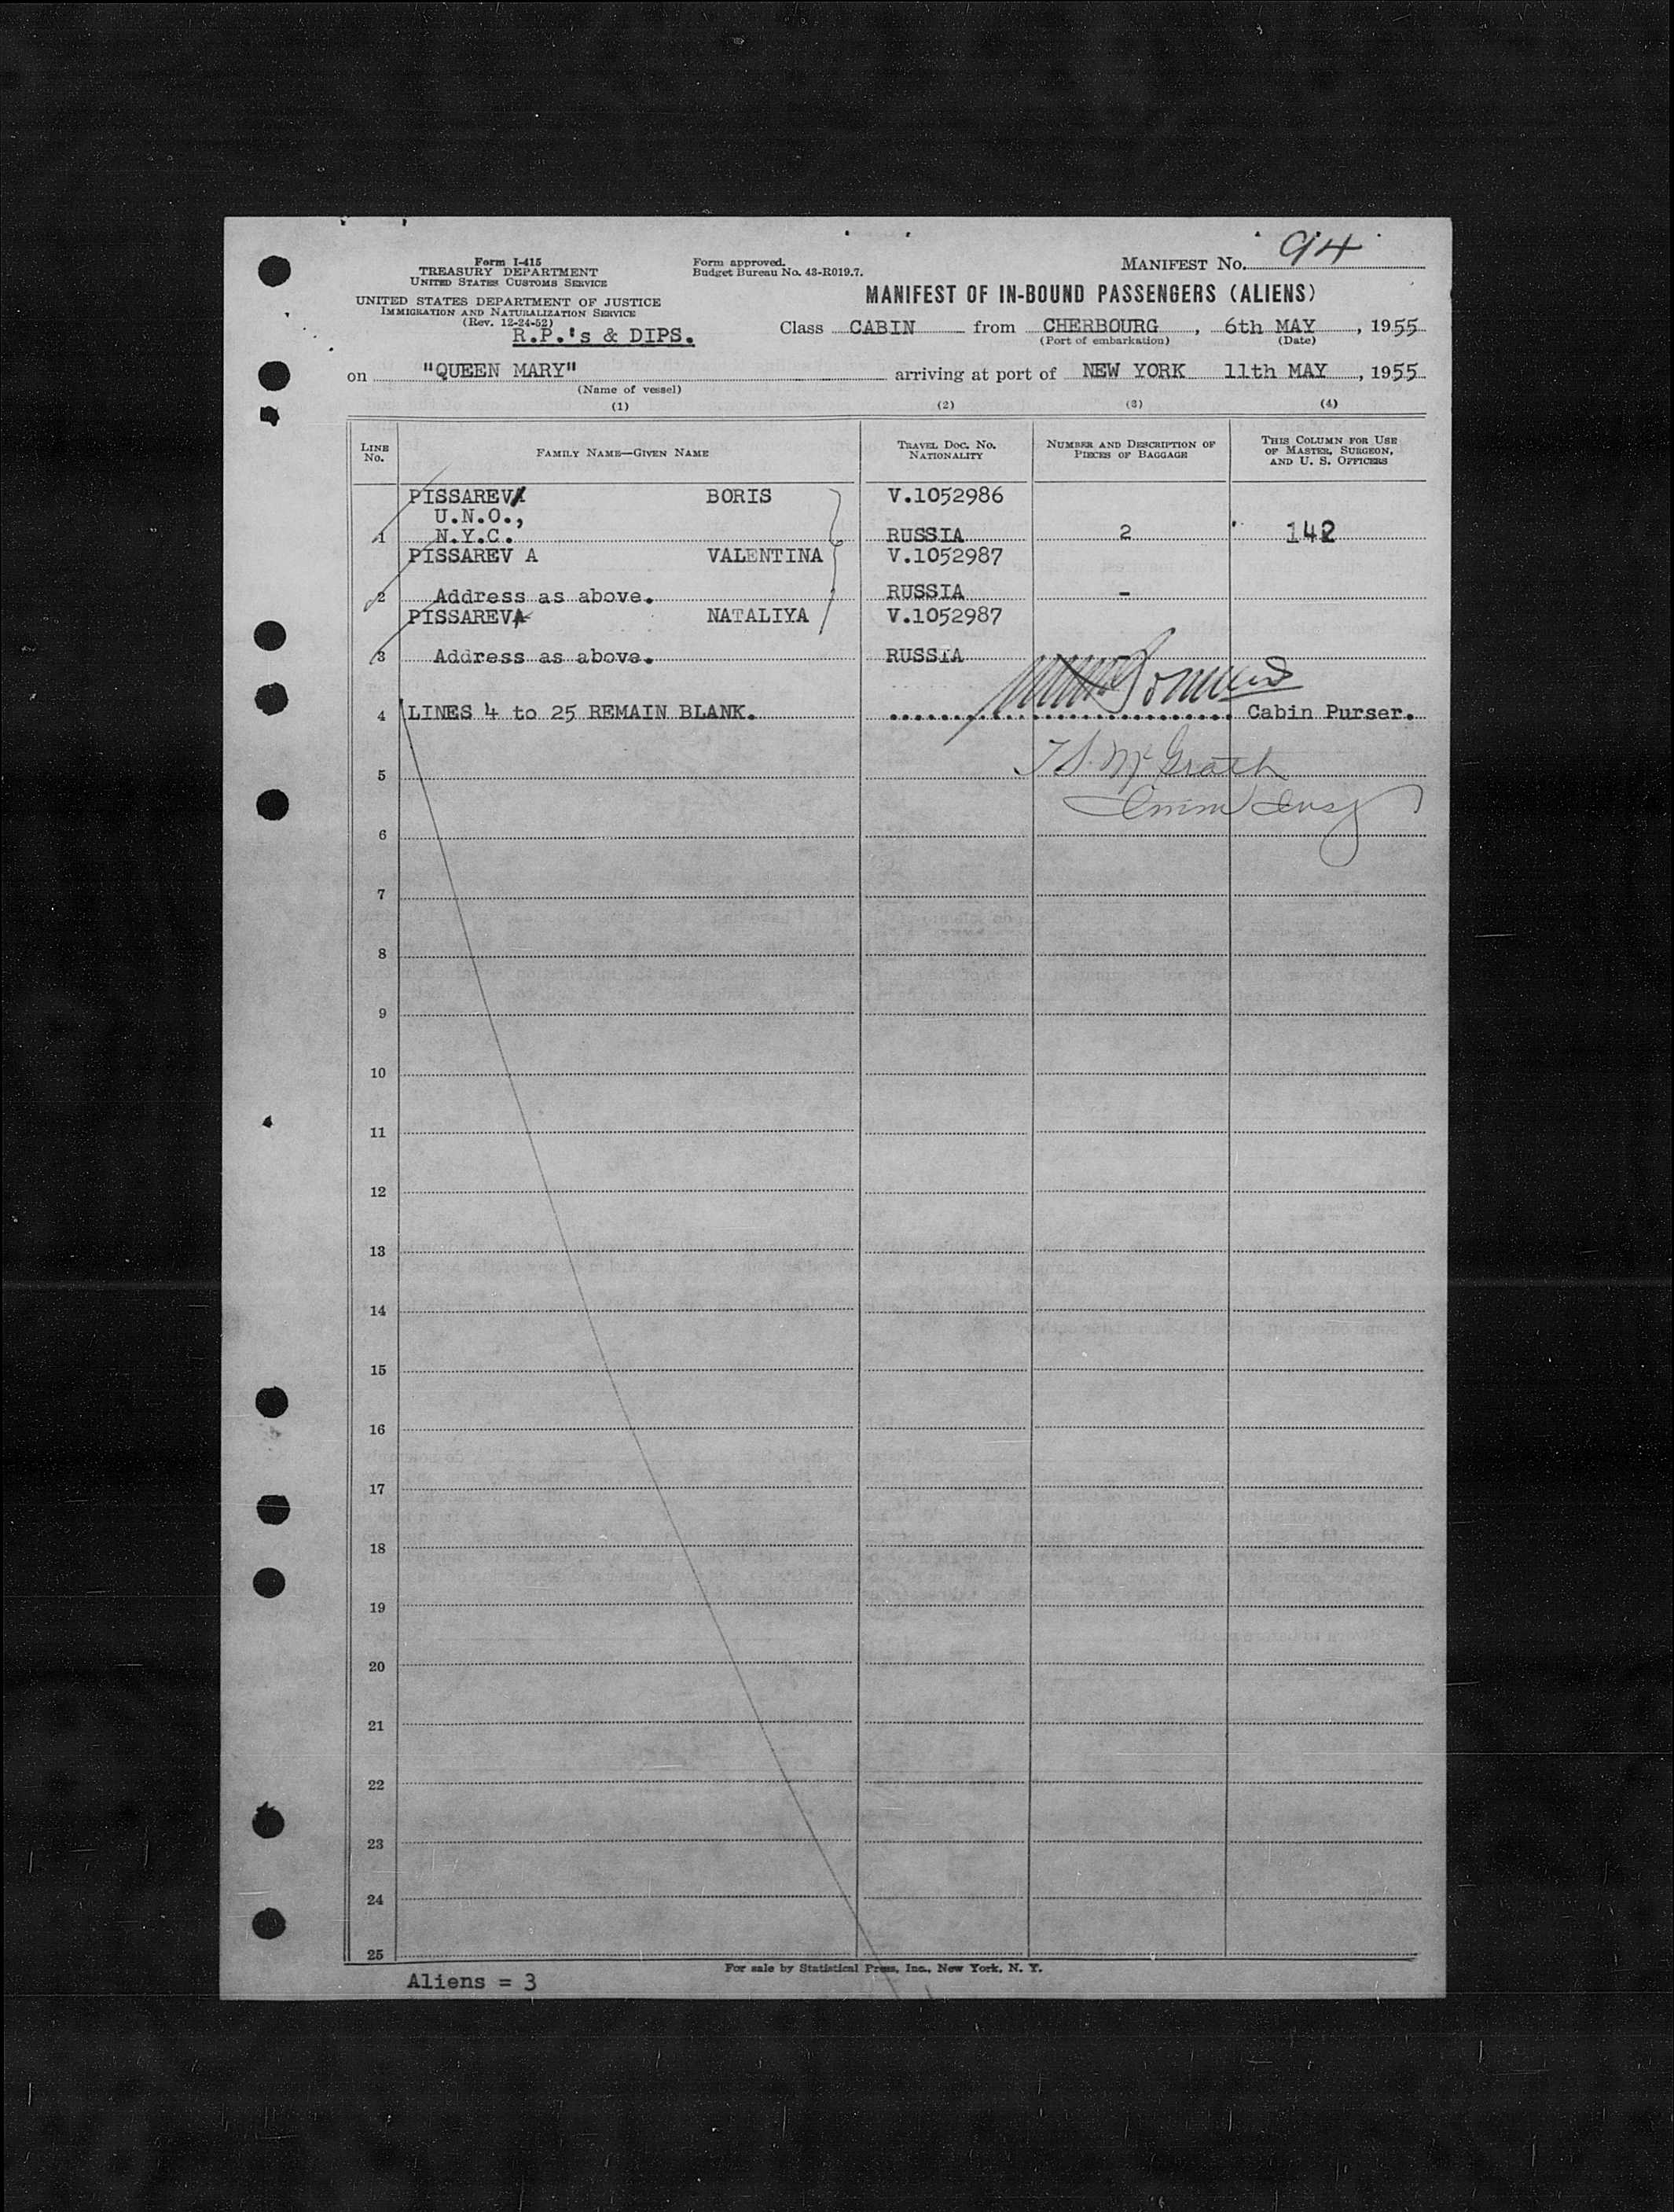 Form I-415
TREASURY DEPARTMENT
UNITED STATES CUSTOMS SERVICE
UNITED STATES DEPARTMENT OF JUSTICE
IMMIGRATION AND NATURALIZATION SERVICE
(Rev. 12-24-52)
R.P.'s & DIPS.
Form approved.
Budget Bureau No. 43-R019.7.
MANIFEST NO. 94
MANIFEST OF IN-BOUND PASSENGERS (ALIENS)
Class CABIN from CHERBOURG, 6th MAY, 1955
(Port of embarkation) (Date)
on "QUEEN MARY" arriving at port of NEW YORK 11th MAY, 1955
(Name of vessel)
(1) (2) (3) (4)
LINE NO. FAMILY NAME—GIVEN NAME TRAVEL DOC. NO. NATIONALITY NUMBER AND DESCRIPTION OF PIECES OF BAGGAGE THIS COLUMN FOR USE OF MASTER, SURGEON, AND U. S. OFFICERS
PISSAREV BORIS V.1052986
U.N.O.,
1 N.Y.C. RUSSIA 2 142
PISSAREV A VALENTINA V.1052987
2 Address as above. RUSSIA -
PISSAREVA NATALIYA V.1052987
3 Address as above. RUSSIA -
4 LINES 4 to 25 REMAIN BLANK. Cabin Purser.
5 McGrath
Imm Insp
6
7
8
9
10
11
12
13
14
15
16
17
18
19
20
21
22
23
24
25
For sale by Statistical Press, Inc., New York, N. Y.
Aliens = 3